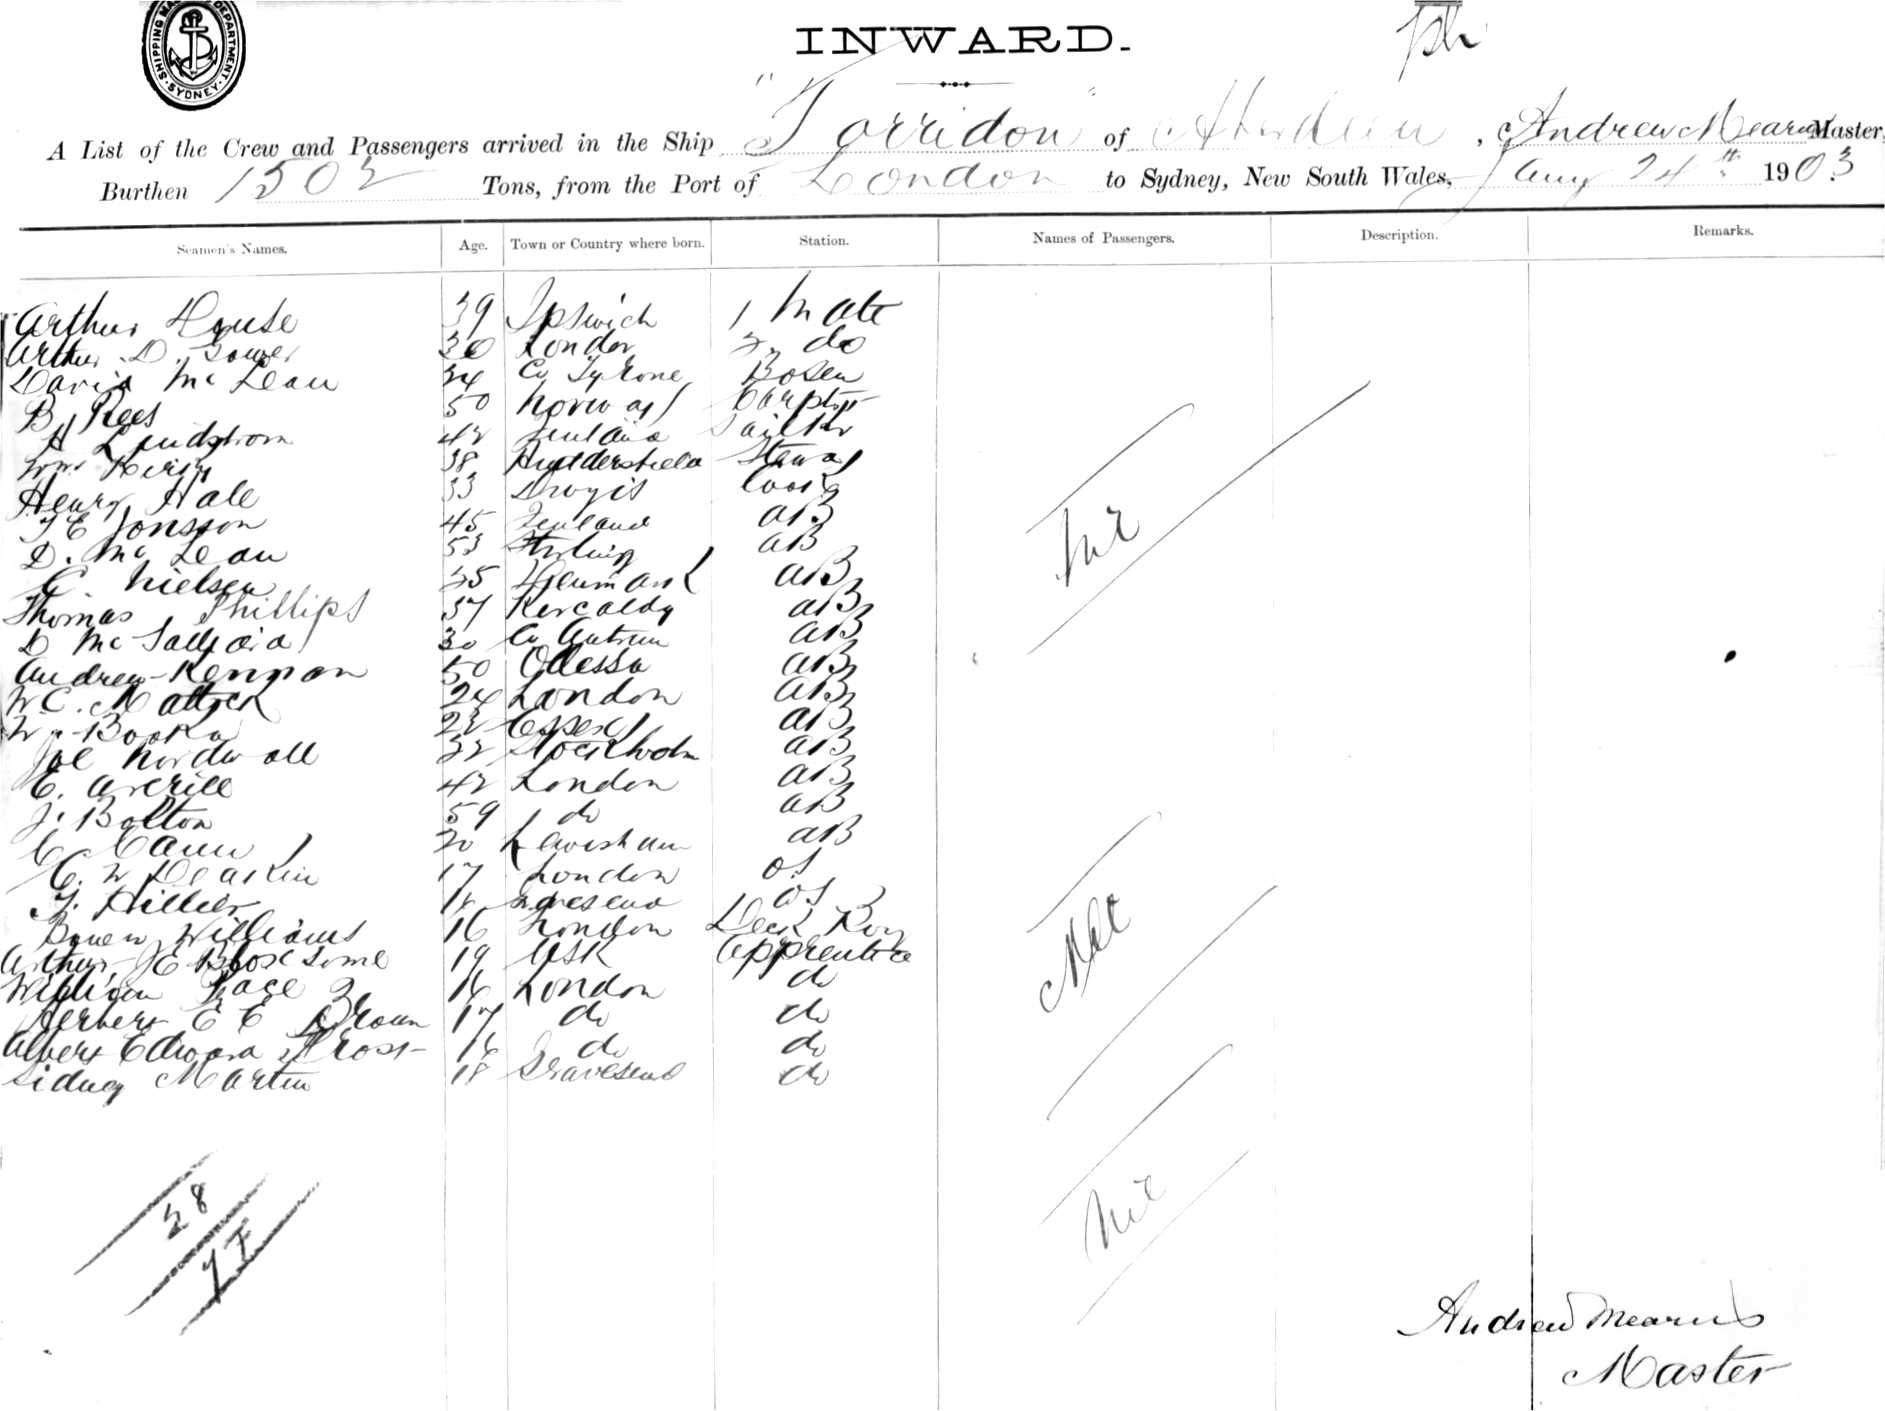 SHIPPING MA DEPARTMENT. SYDNEY.
INWARD.
A List of the Crew and Passengers arrived in the Ship "Torridon" of Aberdeen, Andrew Mearns Master,
Burthen 1502 Tons, from the Port of London to Sydney, New South Wales, Jany 24th 1903
Seamen's Names. Age. Town or Country where born. Station. Names of Passengers. Description. Remarks.
Arthur House 39 Ipswich 1 Mate
Arthur D. Gower 30 London 2 do
David McLean 34 Co Tyrone Bosen
B. Rees 50 Norway
A Lindstrom 42 Finland
Wm 38 Huddersfield
Henry Hale 33 Cook
T E Jonsson 45 Finland AB
D. McLean 53 Stirling AB
C Nielsen 25 Denmark AB
Thomas Phillips 37 Kercaldy AB
D Mc 30 Co Antrim AB
Andrew 50 Odessa AB
W. C. Mattock 24 London AB
W. 22 Essex AB
Nordwall 22 Stockholm AB
E. Averill 42 London AB
J. Bolton 59 do AB
C Cann 20 Lewisham AB
C. W Deakin 17 London OS
Hillier Gravesend OS
Williams 16 London Deck Boy
Arthur E Bloxsome 19 Usk Apprentice
William Page 16 London do
Herbert E E Brown 17 do do
Albert Edward 16 do do
Sidney Martin 18 Gravesend do
Nil
28
Andrew Mearns
Master